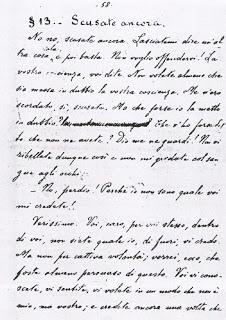 58.
§ 13. - Scusate ancora.
No no, scusate ancora. Lasciatemi dire un'al
tra cosa sola, e poi basta. Non voglio offendervi! La
vostra coscienza, voi dite. Non volete almeno che
sia messa in dubbio la vostra coscienza. Me n'ero
scordato, sì, scusate. Ma che forse io la metto
in dubbio? Che v'ho forse det
to che non ne avete? Dio me ne guardi! Non vi
ribellate dunque così e non mi guardate col san
gue agli occhi:
- Ma, perdio! Perché io non sono quale voi
mi credete!
Verissimo. Voi, caro, per voi stesso, dentro
di voi, non siete quale io, di fuori, vi credo.
Ma non per cattiva volontà; vorrei, ecco, che
foste almeno persuaso di questo. Voi vi cono-
scete, vi sentite, vi volete in un modo che non è
mio, ma vostro; e credete ancora una volta che